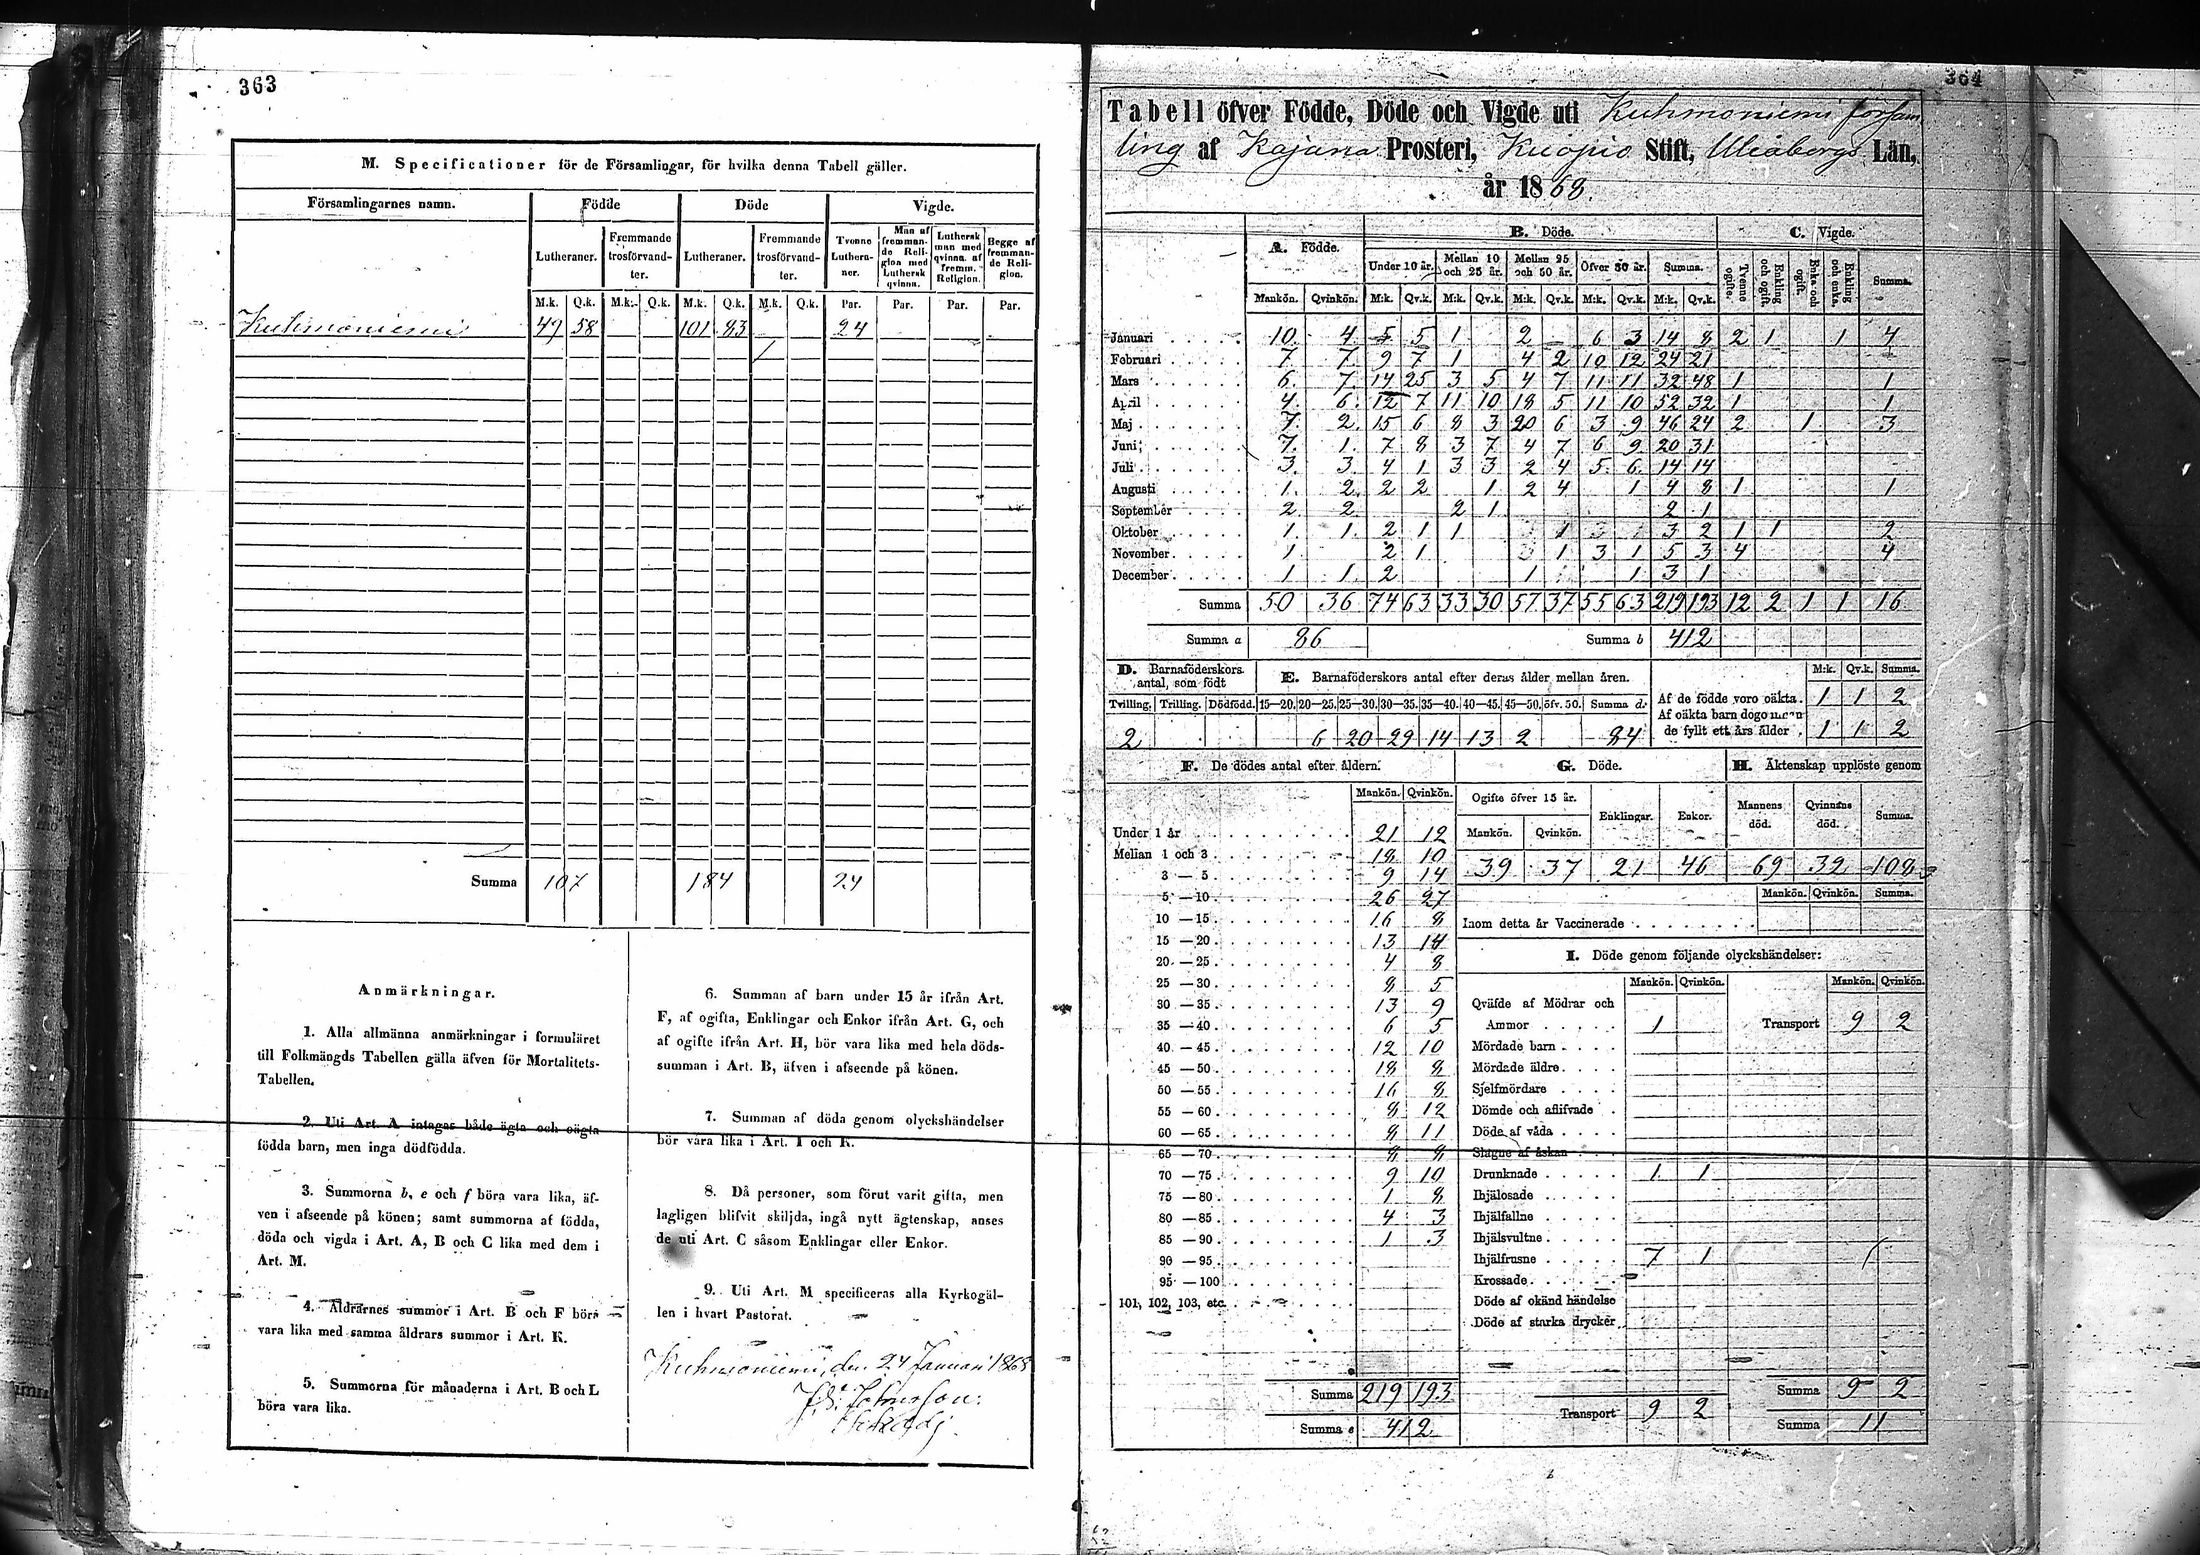 363
M. Specificationer för de Församlingar, för hvilka denna Tabell gäller.
Församlingarnes namn. Födde Döde Vigde.
Lutheraner. Fremmande trosförvandter. Lutheraner. Fremmande trosförvandter. Tvenne Lutheraner. Man af fremmande Religion med Luthersk qvinna. Luthersk man med qvinna af fremm. Religion. Begge af fremmande Religion.
M.k. Q.k. M.k. Q.k. M.k. Q.k. M.k. Q.k. Par. Par. Par. Par.
Kuhmoniemi 49 58 101 83 24
Summa 107 184 24
Anmärkningar.
1. Alla allmänna anmärkningar i formuläret
till Folkmängds Tabellen gälla äfven för Mortalitets-
Tabellen.
2. Uti Art. A intagas både ägta och oägta
födda barn, men inga dödfödda.
3. Summorna b, e och f böra vara lika, äf-
ven i afseende på könen; samt summorna af födda,
döda och vigda i Art. A, B och C lika med dem i
Art. M.
4. Åldrarnes summor i Art. B och F böra
vara lika med samma åldrars summor i Art. K.
5. Summorna för månaderna i Art. B och L
böra vara lika.
6. Summan af barn under 15 år ifrån Art.
F, af ogifta, Enklingar och Enkor ifrån Art. G, och
af ogifte ifrån Art. H, bör vara lika med hela döds-
summan i Art. B, äfven i afseende på könen.
7. Summan af döda genom olyckshändelser
bör vara lika i Art. I och K.
8. Då personer, som förut varit gifta, men
lagligen blifvit skiljda, ingå nytt ägtenskap, anses
de uti Art. C såsom Enklingar eller Enkor.
9. Uti Art. M specificeras alla Kyrkogäl-
len i hvart Pastorat.
Kuhmoniemi, den 24 Januari 1868
364
Tabell öfver Födde, Döde och Vigde uti Kuhmoniemi försam
ling af Kajana Prosteri, Kuopio Stift, Uleåborgs Län,
år 1868.
A. Födde. B. Döde. C. Vigde.
Under 10 år. Mellan 10 och 25 år. Mellan 25 och 50 år. Öfver 50 år. Summa. Tvenne ogifte. Enkling och ogift. Enka och ogift. Enkling och enka. Summa.
Mankön. Qvinkön. M:k. Qv.k. M:k. Qv.k. M:k. Qv.k. M:k. Qv.k. M:k. Qv.k.
Januari 10 4 5 5 1 2 6 3 14 8 2 1 1 4
Februari 7 7 9 7 1 4 2 10 12 24 21
Mars 6 7 14 25 3 5 4 7 11 11 32 48 1 1
April 4 6 12 7 11 10 18 5 11 10 52 32 1 1
Maj 7 2 15 6 8 3 20 6 3 9 46 24 2 1 3
Juni 7 1 7 8 3 7 4 7 6 9 20 31
Juli 3 3 4 1 3 3 2 4 5 6 14 14
Augusti 1 2 2 2 1 2 4 1 4 8 1 1
September 2 2 2 1 2 1
Oktober 1 1 2 1 1 1 3 2 1 1 2
November 1 2 1 1 3 1 5 3 4 4
December 1 1 2 1 1 3 1
Summa 50 36 74 63 33 30 57 37 55 63 219 193 12 2 1 1 16
Summa a 86 Summa b 412
D. Barnaföderskors antal, som födt
Tvilling. Trilling. Dödfödd.
2
E. Barnaföderskors antal efter deras ålder mellan åren.
15—20. 20—25. 25—30. 30—35. 35—40. 40—45. 45—50. öfv. 50. Summa d.
6 20 29 14 13 2 84
M:k. Qv.k. Summa.
Af de födde voro oäkta. 1 1 2
Af oäkta barn dogo innan
de fyllt ett års ålder. 1 1 2
F. De dödes antal efter åldern.
Mankön. Qvinkön.
Under 1 år 21 12
Mellan 1 och 3 18 10
3 — 5 9 14
5 — 10 26 27
10 — 15 16 8
15 — 20 13 14
20 — 25 4 8
25 — 30 8 5
30 — 35 13 9
35 — 40 6 5
40 — 45 12 10
45 — 50 18 8
50 — 55 16 8
55 — 60 8 12
60 — 65 8 11
65 — 70 8 8
70 — 75 9 10
75 — 80 1 8
80 — 85 4 3
85 — 90 1 3
90 — 95
95 — 100
101, 102, 103, etc.
Summa 219 193
Summa e 412
G. Döde.
Ogifte öfver 15 år. Enklingar. Enkor.
Mankön. Qvinkön.
39 37 21 46
H. Äktenskap upplöste genom
Mannens död. Qvinnans död. Summa.
69 32 108
Mankön. Qvinkön. Summa.
Inom detta år Vaccinerade
I. Döde genom följande olyckshändelser:
Mankön. Qvinkön. Mankön. Qvinkön.
Qväfde af Mödrar och
Ammor 1 Transport 9 2
Mördade barn
Mördade äldre
Sjelfmördare
Dömde och aflifvade
Döde af våda
Slagne af åskan
Drunknade 1 1
Ihjälosade
Ihjälfallne
Ihjälsvultne
Ihjälfrusne 7 1
Krossade
Döde af okänd händelse
Döde af starka drycker
Transport 9 2
Summa 9 2
Summa 11